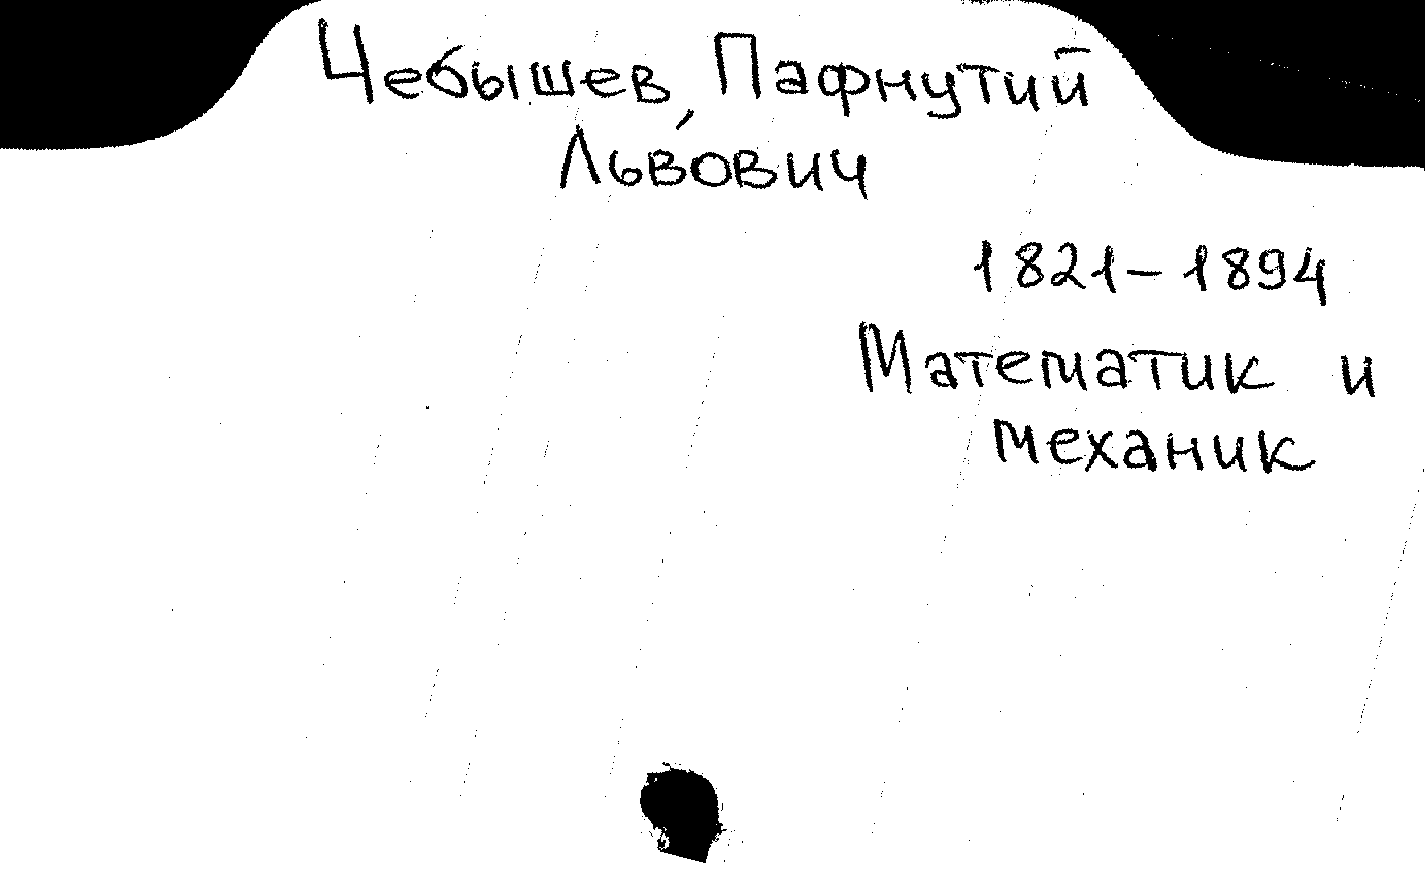 Чебышев, Пафнутий
Львович
1821-1894
Математик и
механик